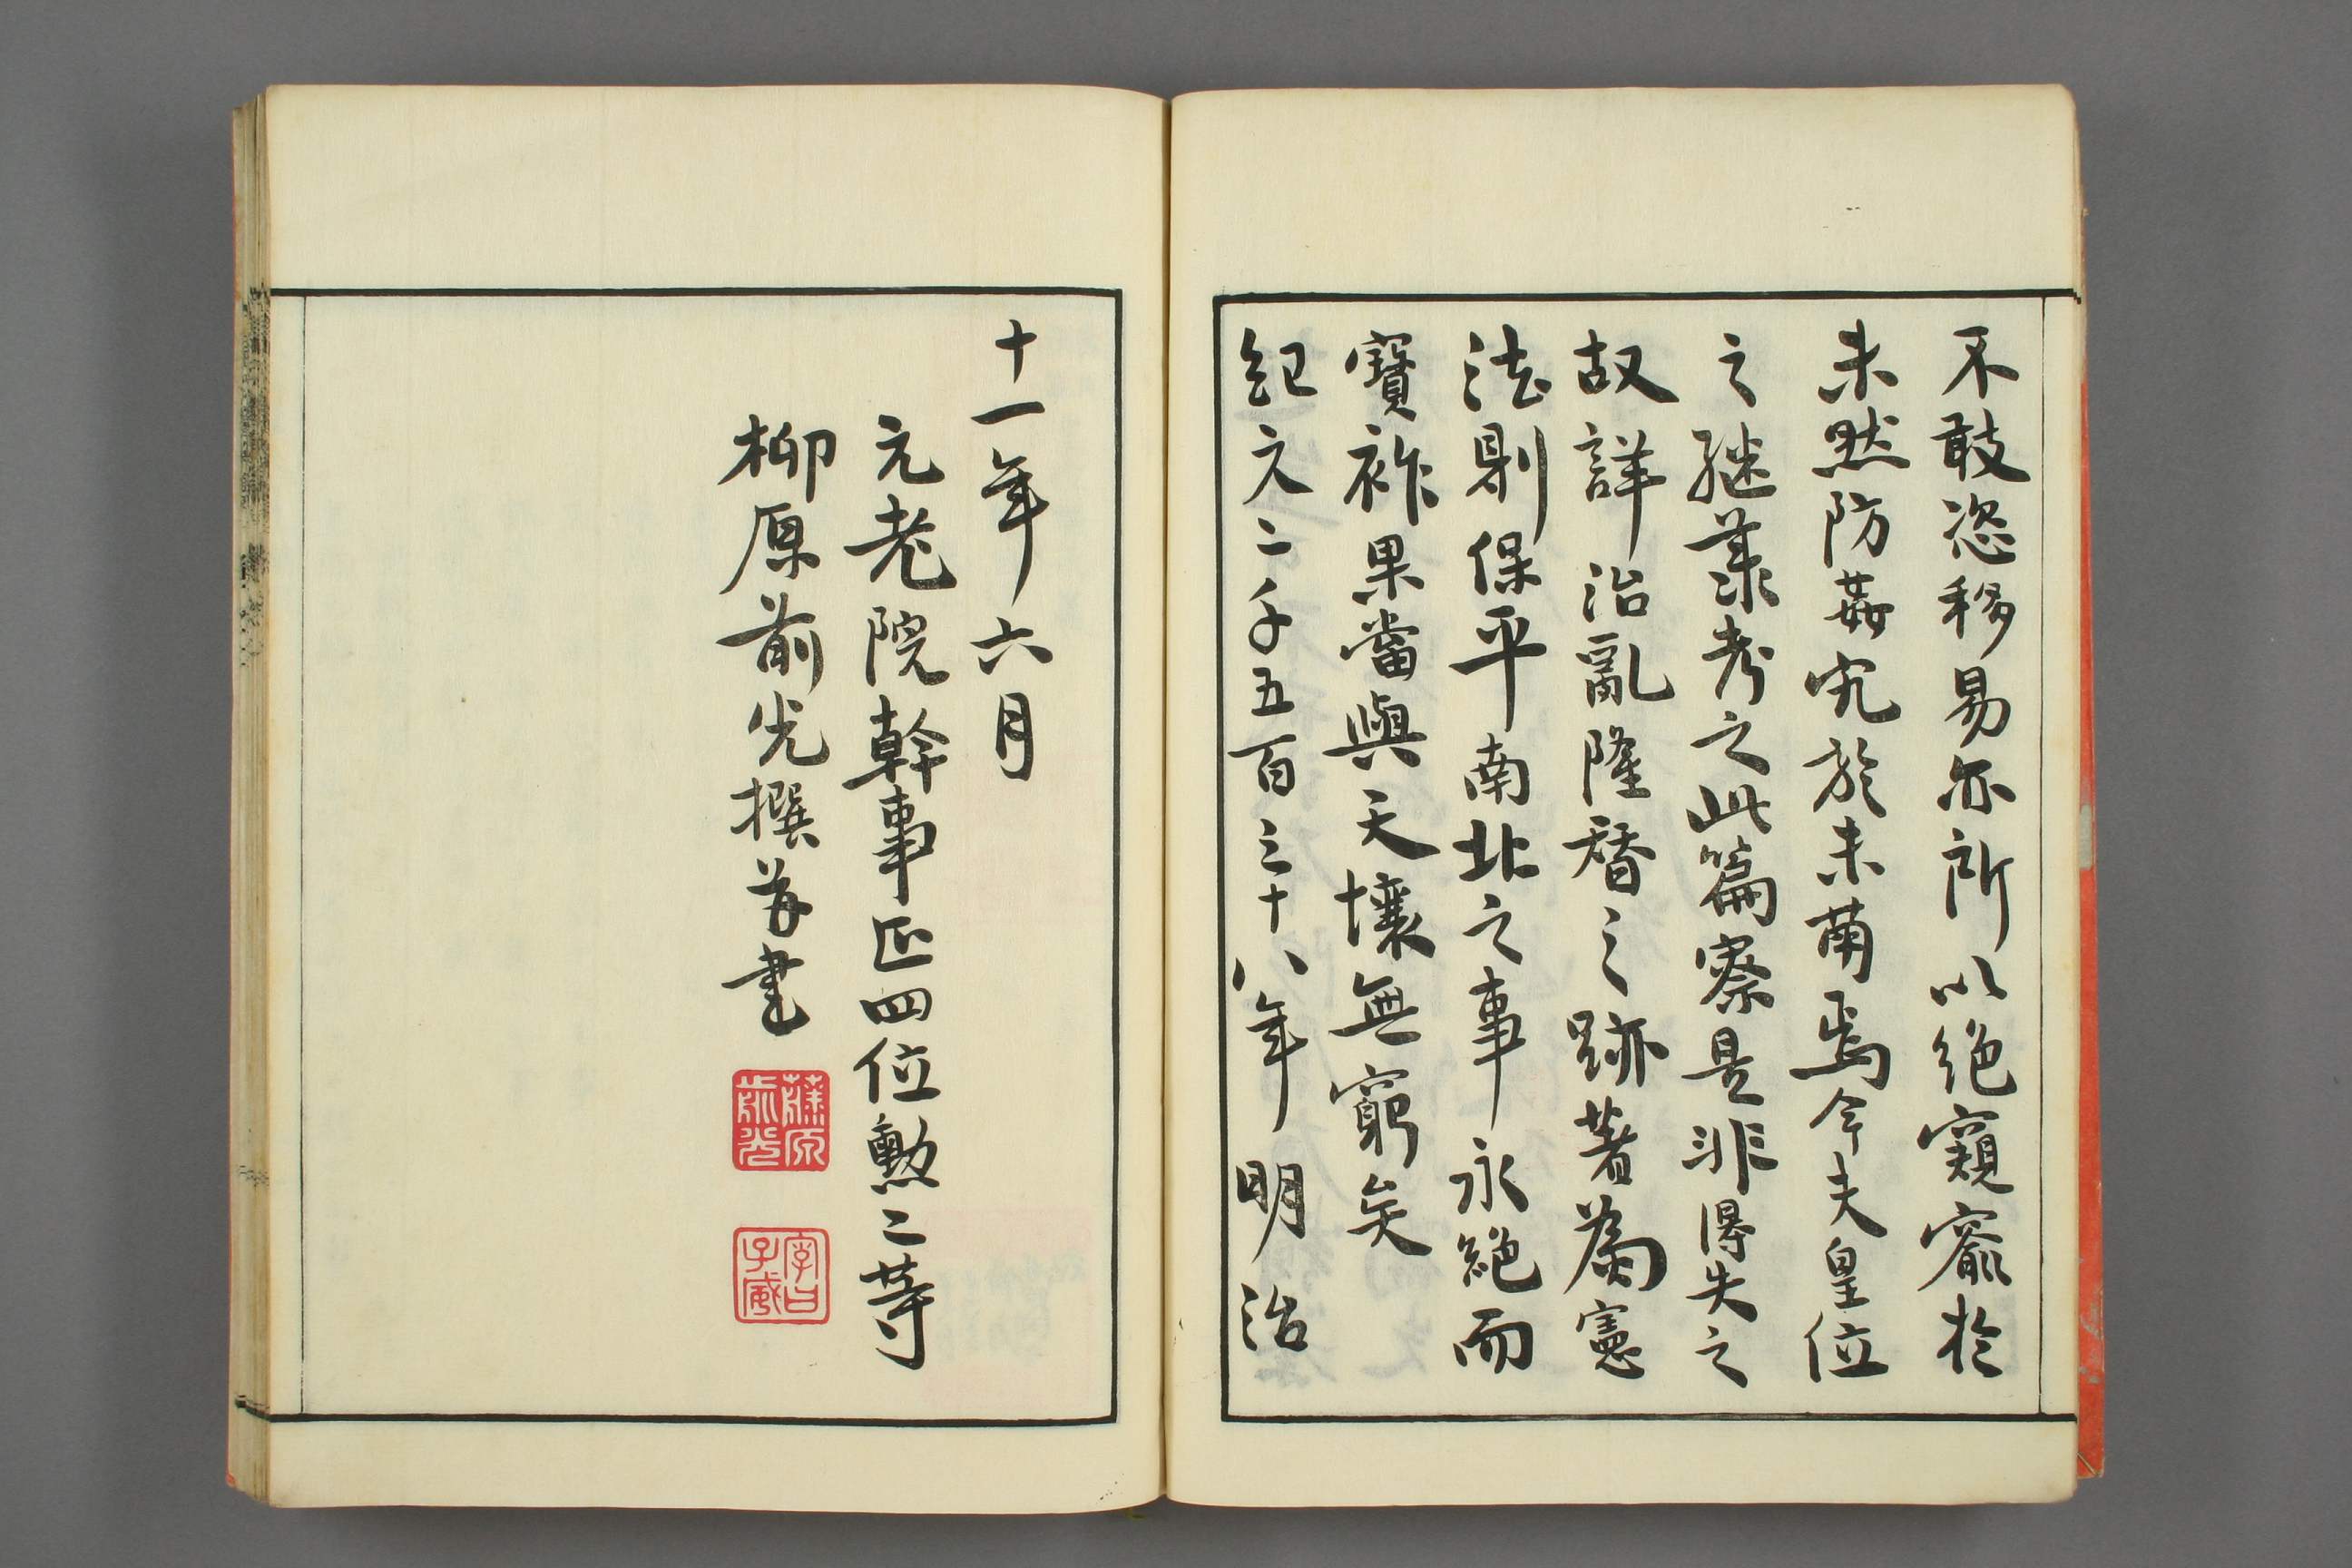 不敢恣移易亦所以絶窺窬於
未然防姦宄於未萌焉今夫皇位
之継承考之此篇察是非得失之
故詳治亂隆替之跡著為憲
法則保平南北之事永絶而
寶祚果當與天壤無窮矣
紀元二千五百三十八年明治
十一年六月
元老院幹事正四位勲二等
柳原前光撰并書
藤原
前光
字曰
子威